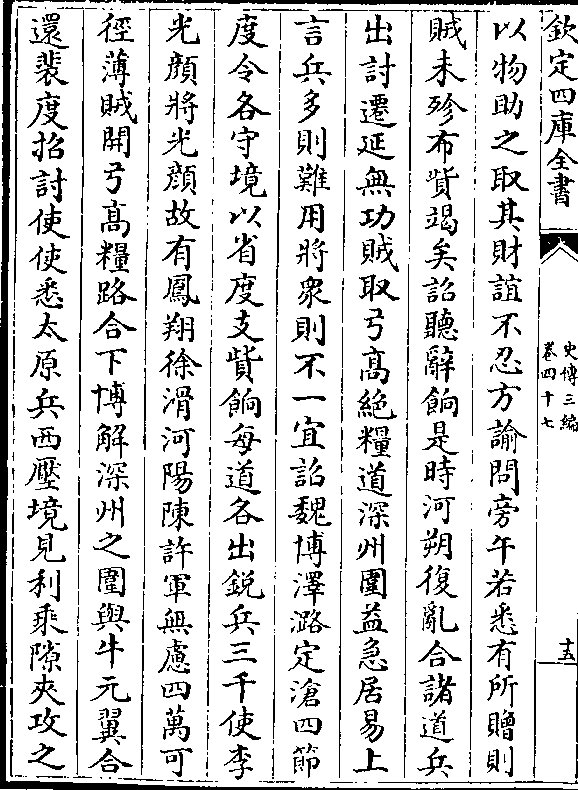 欽定四庫全書
史傳三編
卷四十七
十五
以物助之取其財誼不忍方諭問旁午若悉有所贈則
賊未殄布貲竭矣詔聽辭餉是時河朔復亂合諸道兵
出討遷延無功賊取弓高絶糧道深州圍益急居易上
言兵多則難用將衆則不一宜詔魏博澤潞定滄四節
度令各守境以省度支貲餉每道各出鋭兵三千使李
光顔將光顔故有鳳翔徐滑河陽陳許軍無慮四萬可
徑薄賊開弓髙糧路合下博解深州之圍與牛元翼合
還裴度招討使使悉太原兵西壓境見利乘隙夾攻之